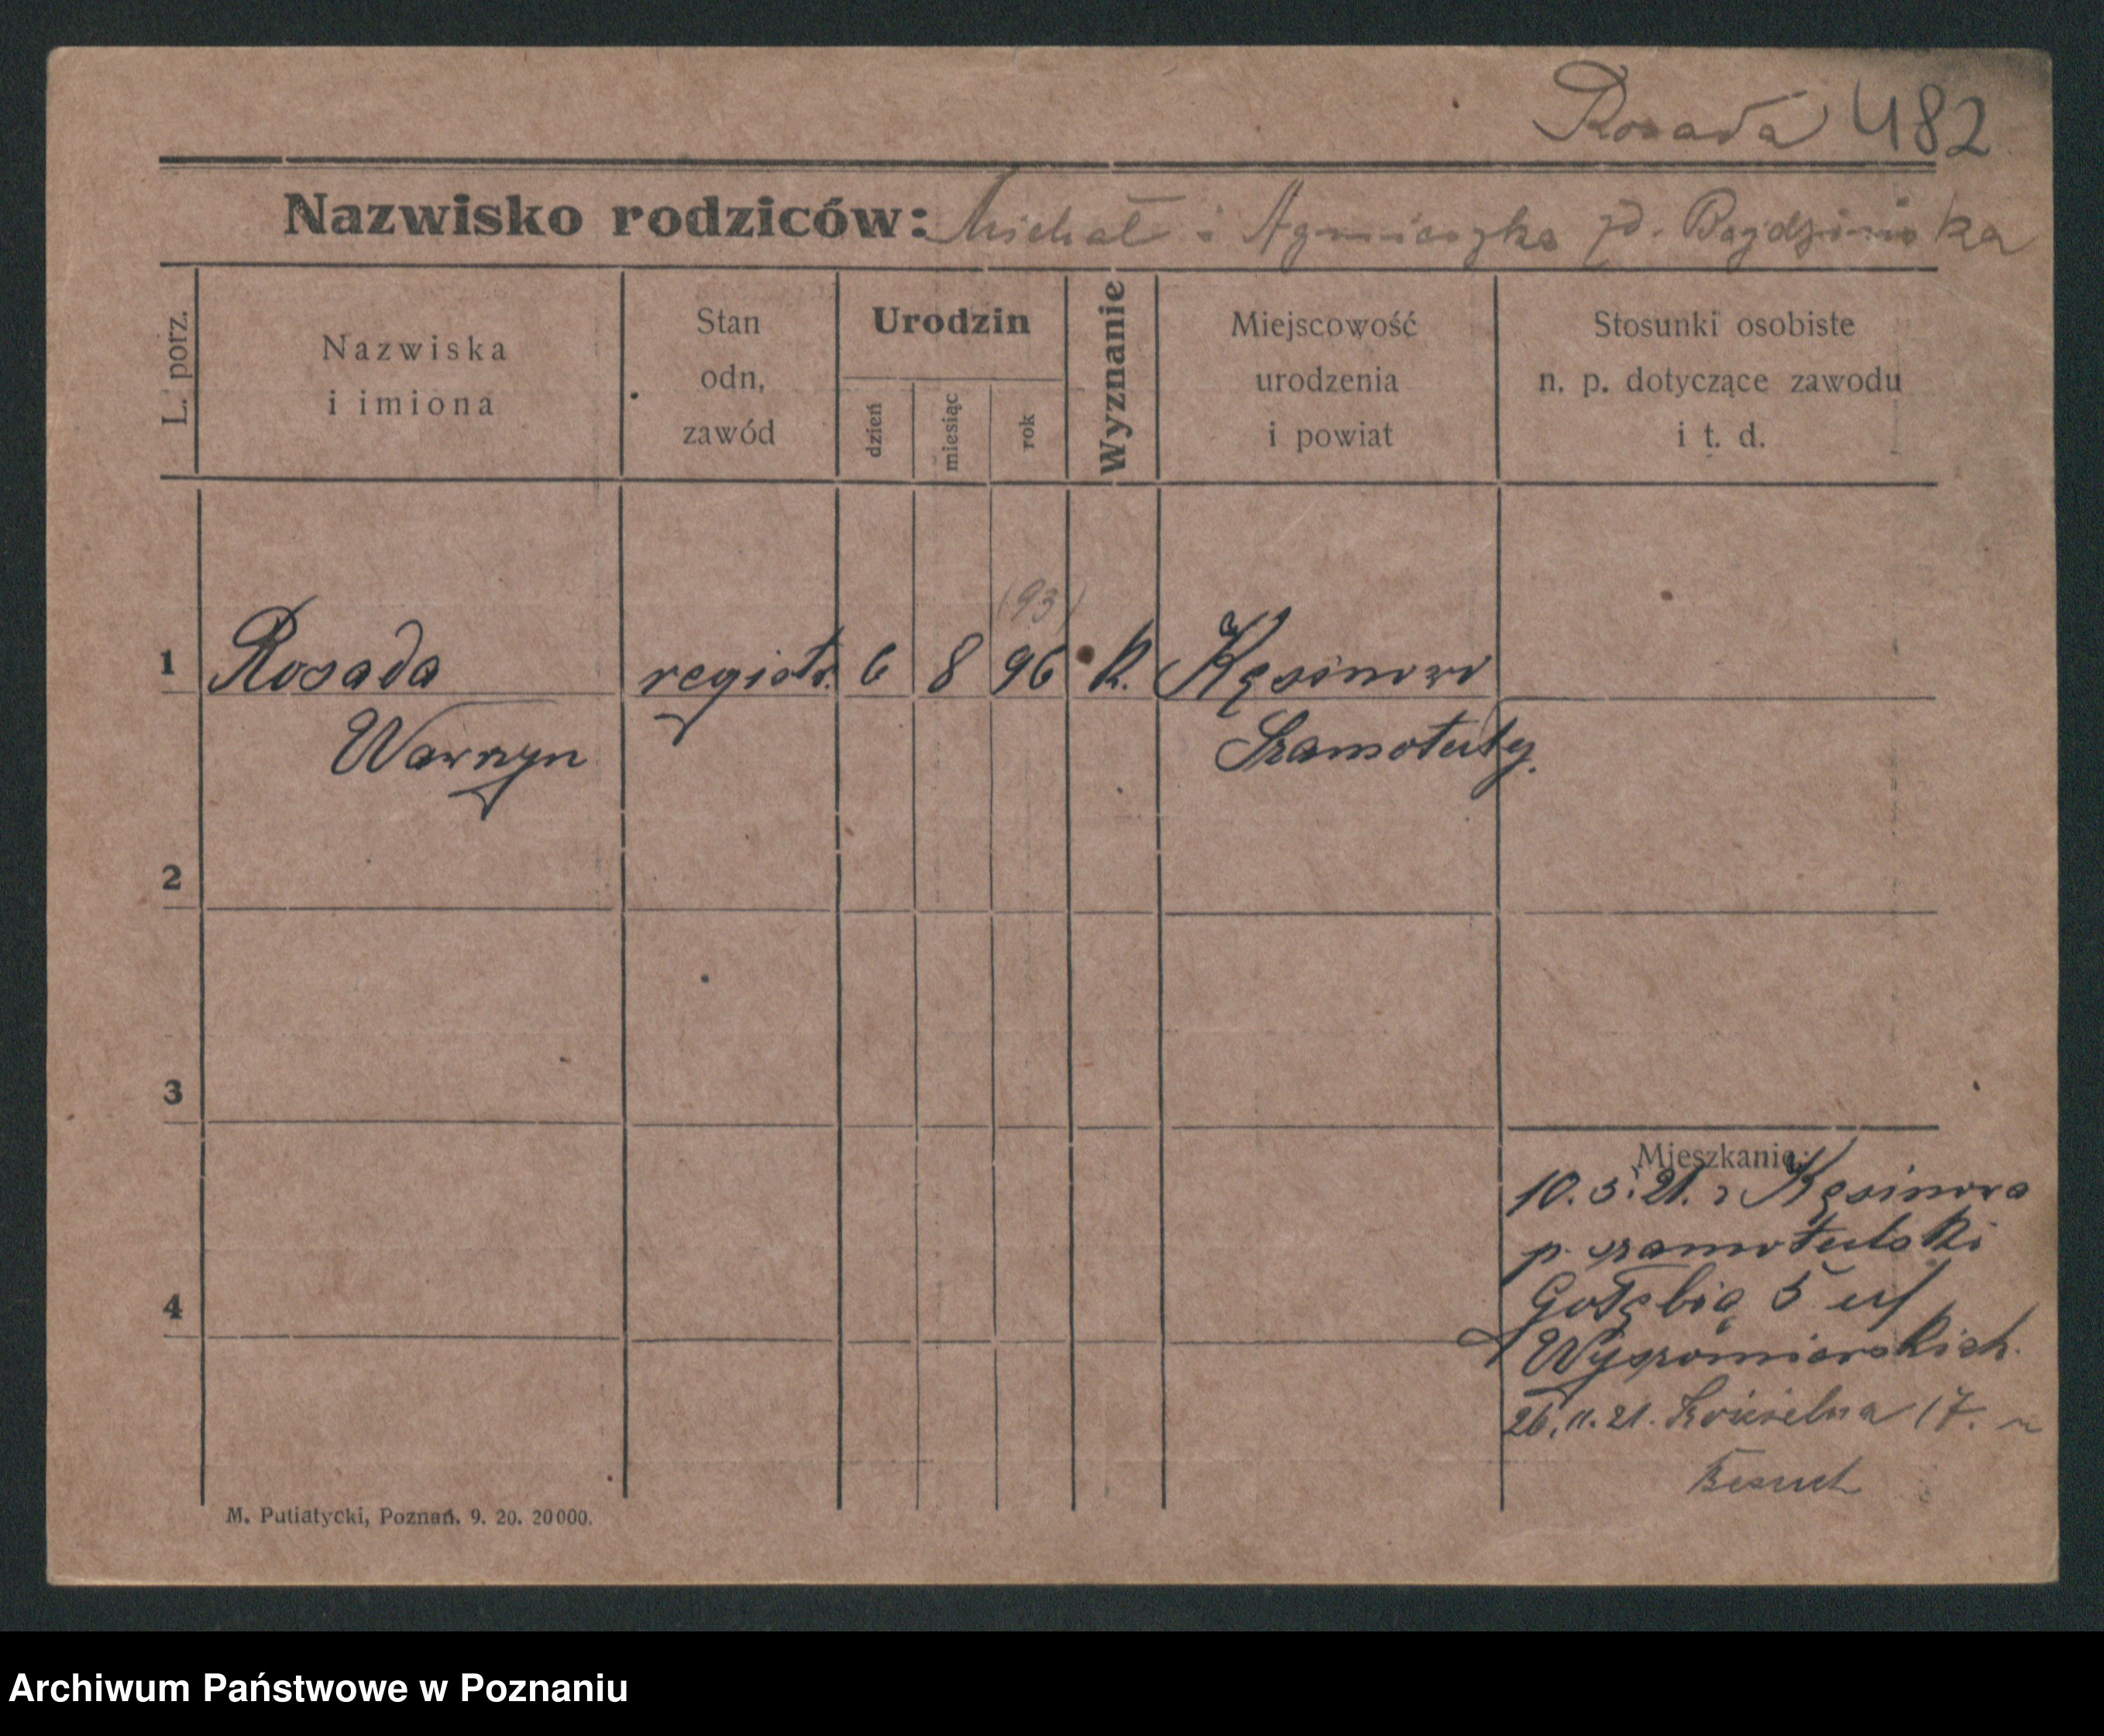 Rosada 482
Nazwisko rodziców: Michał i Agnieszka
L. porz.
Nazwiska
i imiona
Stan
odn,
zawód
Urodzin
dzień
miesiąc
rok
Wyznanie
Miejscowość
urodzenia
i powiat
Stosunki osobiste
n. p. dotyczące zawodu
i t. d.
(93)
1 Rosada registr. 6 8 96 k. Kąsinowo
Wawrzyn Szamotuły.
2
3
Mieszkanie:
10. 3. 21. z Kąsinowa
p. szamotulski
4
Gołębia 5
26. 11. 21. Kościelna 17.
M. Putiatycki, Poznań. 9. 20. 20000.
Archiwum Państwowe w Poznaniu